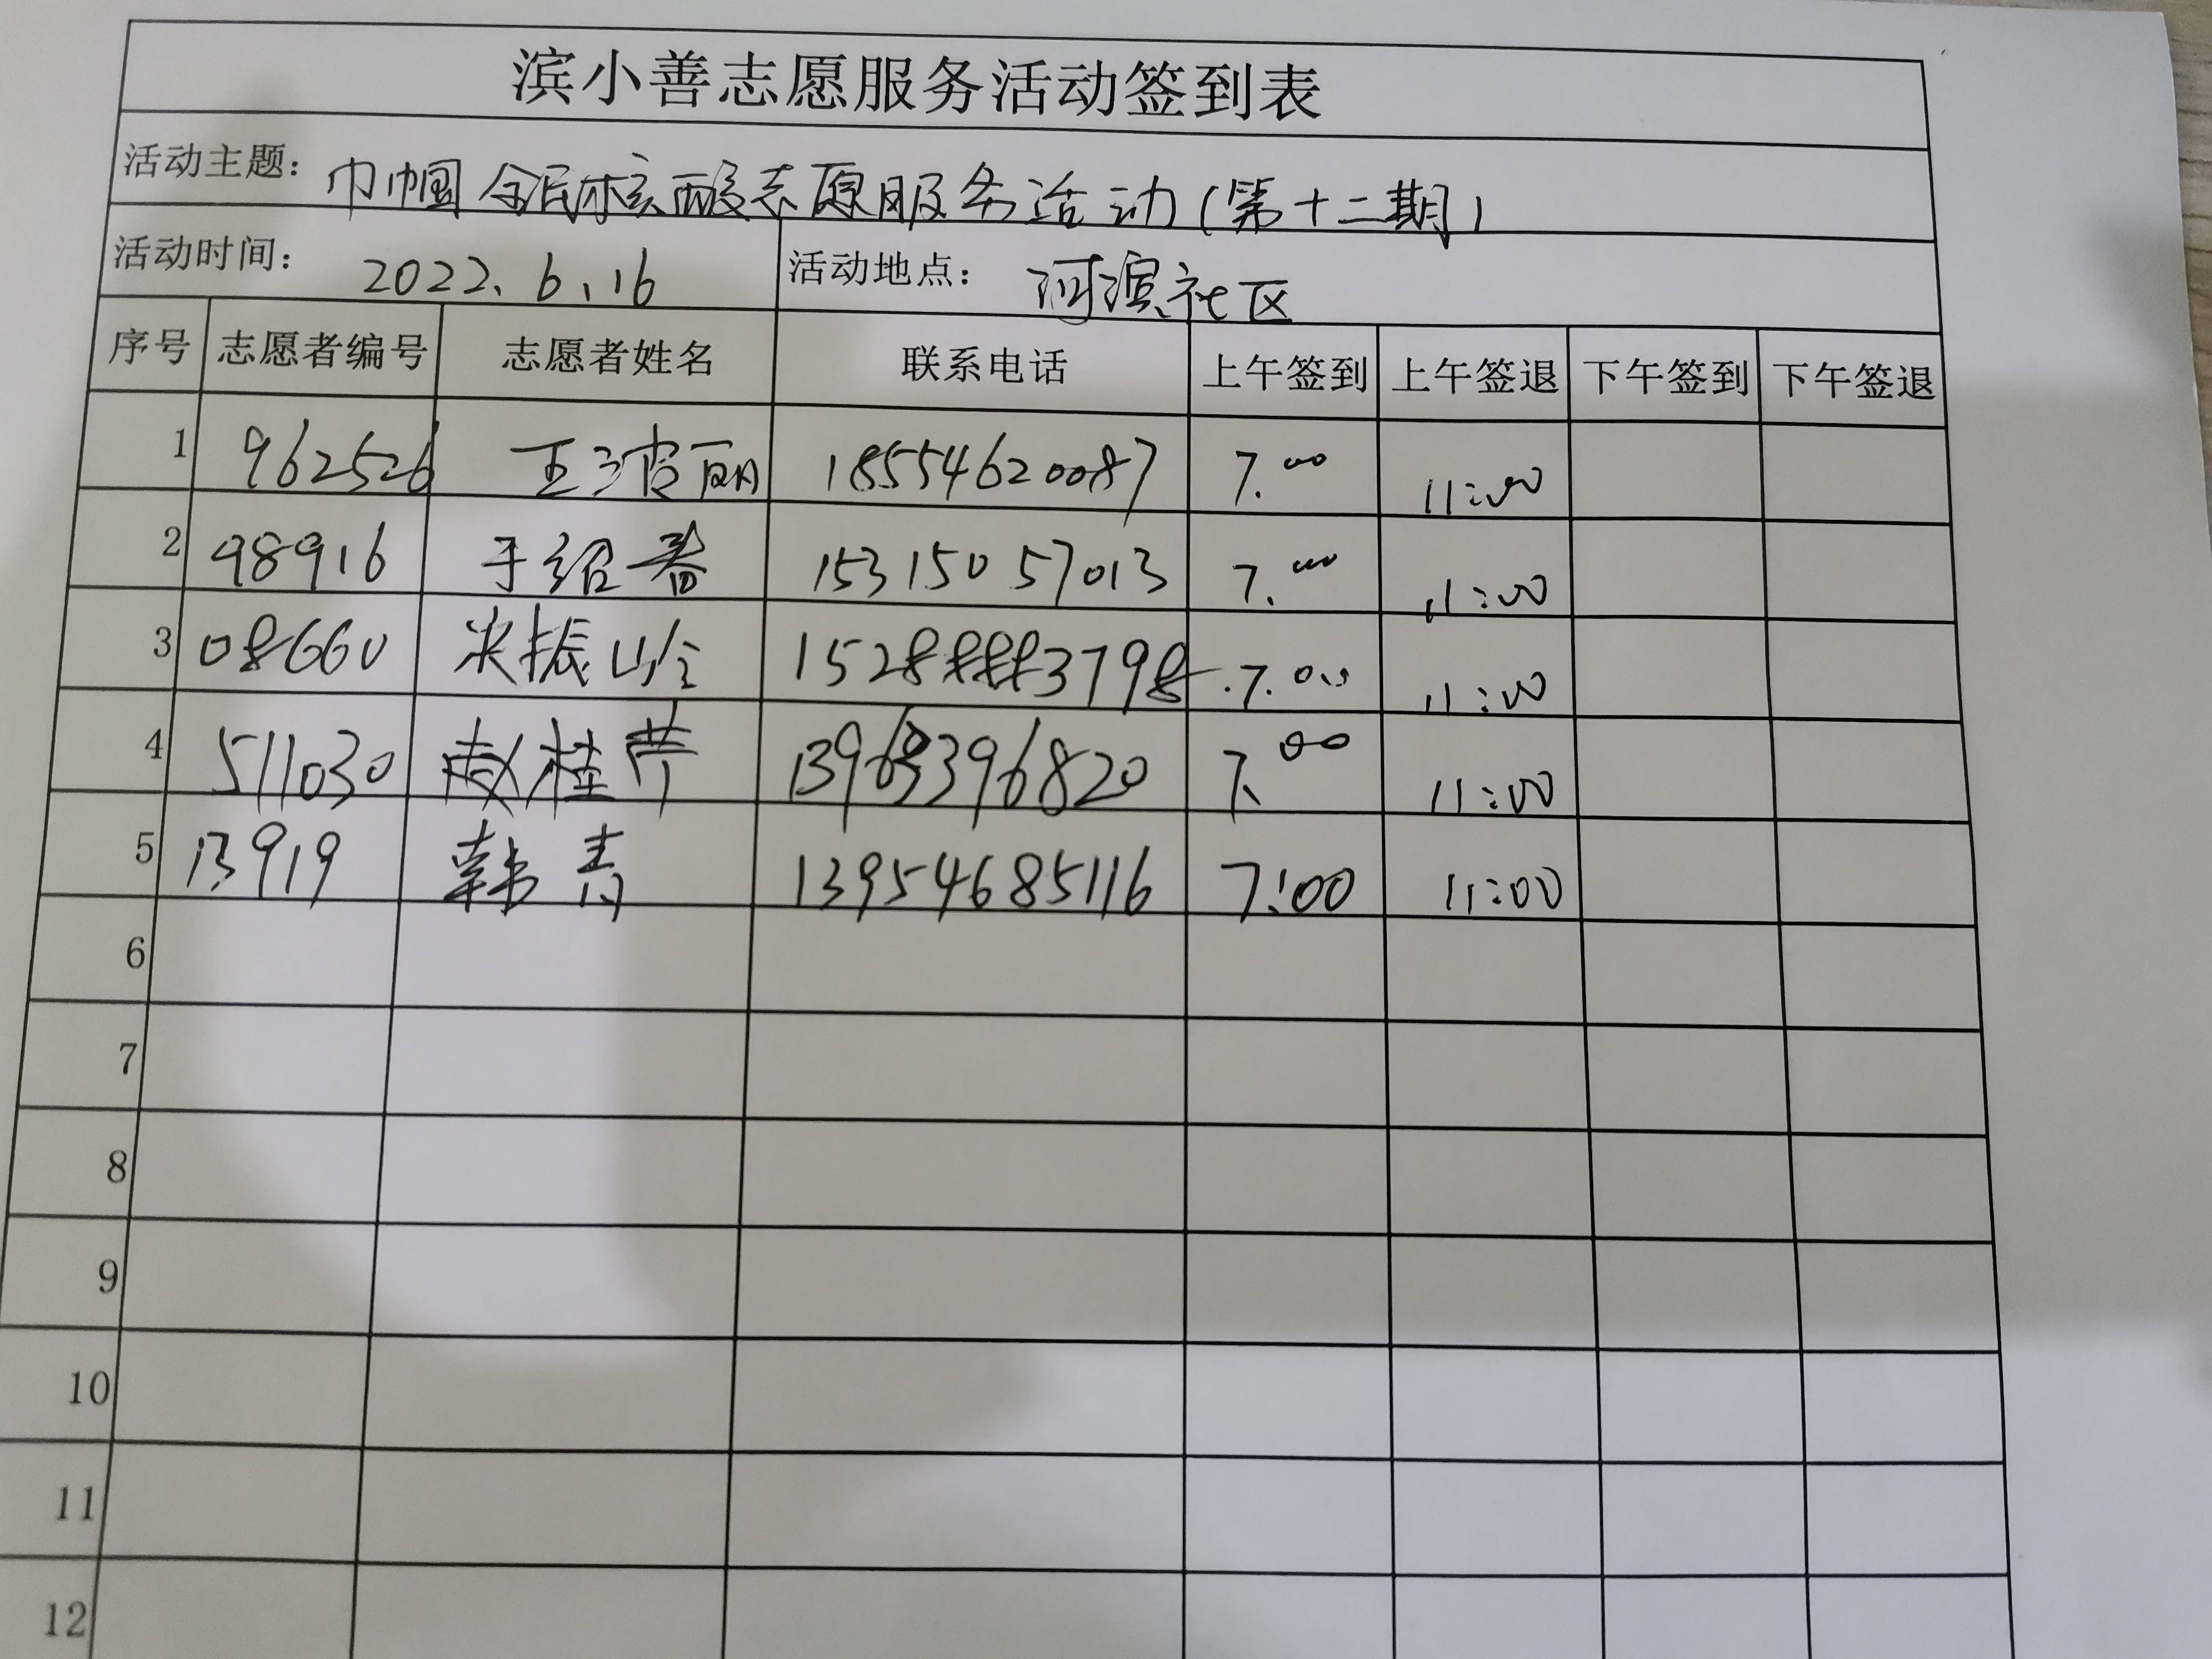 滨小善志愿服务活动签到表
活动主题: 巾帼全民核酸志愿服务活动(第十二期)
活动时间: 2022.6.16 活动地点: 河滨社区
序号 志愿者编号 志愿者姓名 联系电话 上午签到 上午签退 下午签到 下午签退
1 962526 王清丽 18554620087 7.00 11:00
2 98916 于绍春 15315057013 7.00 11:00
3 08660 振 15288883798 7.00 11:00
4 511030 赵桂芹 13963396820 7.00 11:00
5 13919 韩青 13954685116 7:00 11:00
6
7
8
9
10
11
12